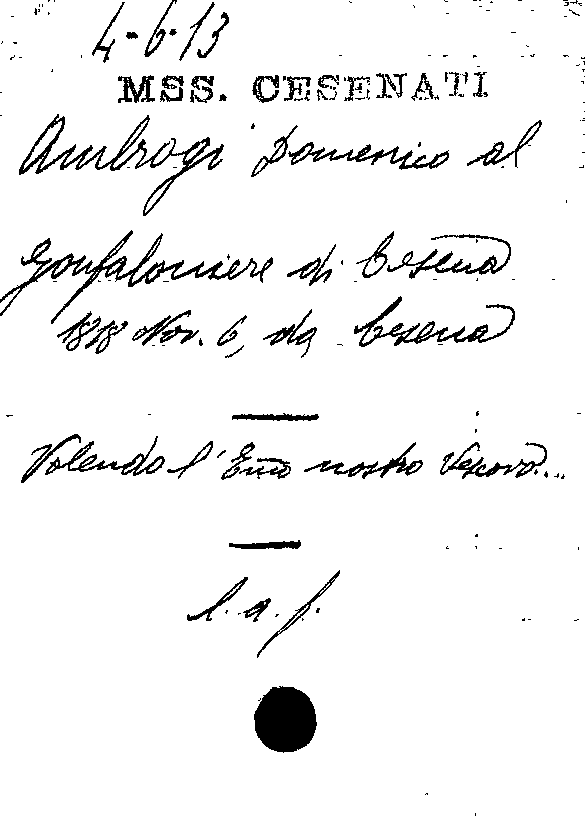 4-6-13
MSS. CESENATI
Ambrogi Domenico al
Gonfaloniere di Cesena
1818 Nov. 6, da Cesena
Volendo l'Emo nostro Vescovo...
l. a. f.